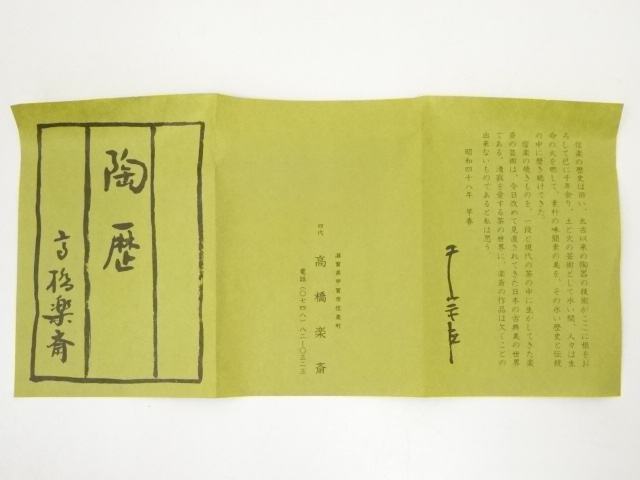 信楽の歴史は旧い、太古以来の陶器の技術がここに根をお
ろして已に千年余り、土と火の芸術として永い間、人々は生
命の火を燃して、素朴の味簡素の美を、その永い歴史と伝統
の中に磨き続けてきた。
信楽の焼きものを、一段と現代の茶の中に生かしてきた楽
斎の芸術は、今日改めて見直されてきた日本の古典美の世界
である。清寂を愛する茶の世界に、楽斎の作品は欠くことの
出来ないものであると私は思う。
昭和四十八年 早春
滋賀県甲賀郡信楽町
四代 高橋楽斎
電話(〇七四八)八二-〇五二五
陶歴
高橋楽斎